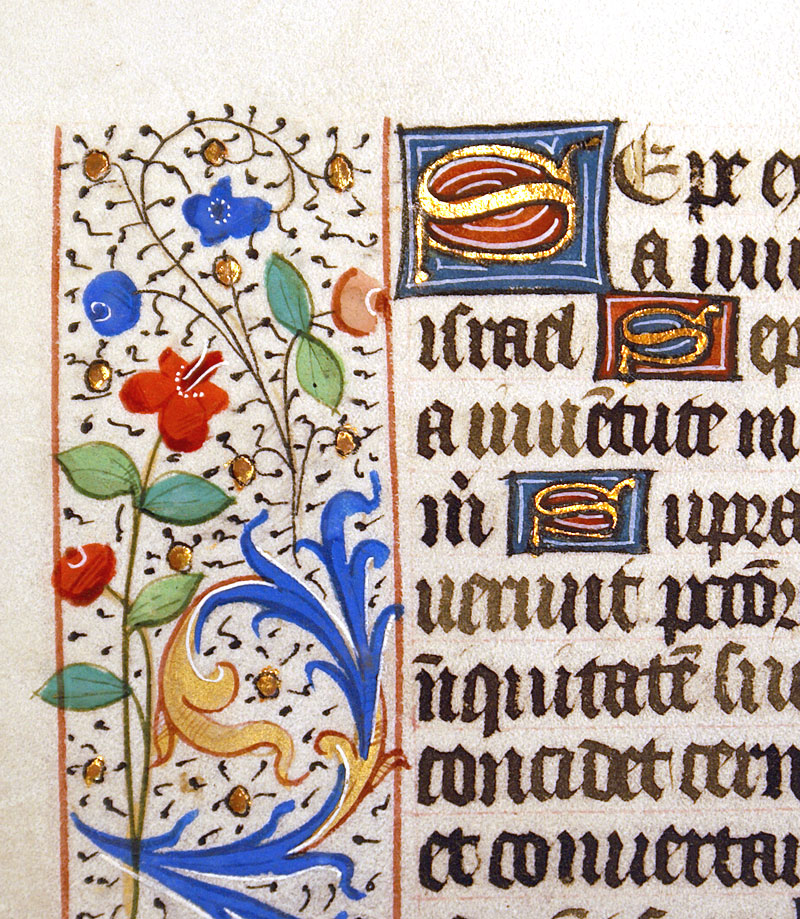 SEpe ex
a iuu
israel Sep
a iuuētute m
mⁱ Supra
uerunt pctōr
īiquitatē su
concidet cer
et conuerta